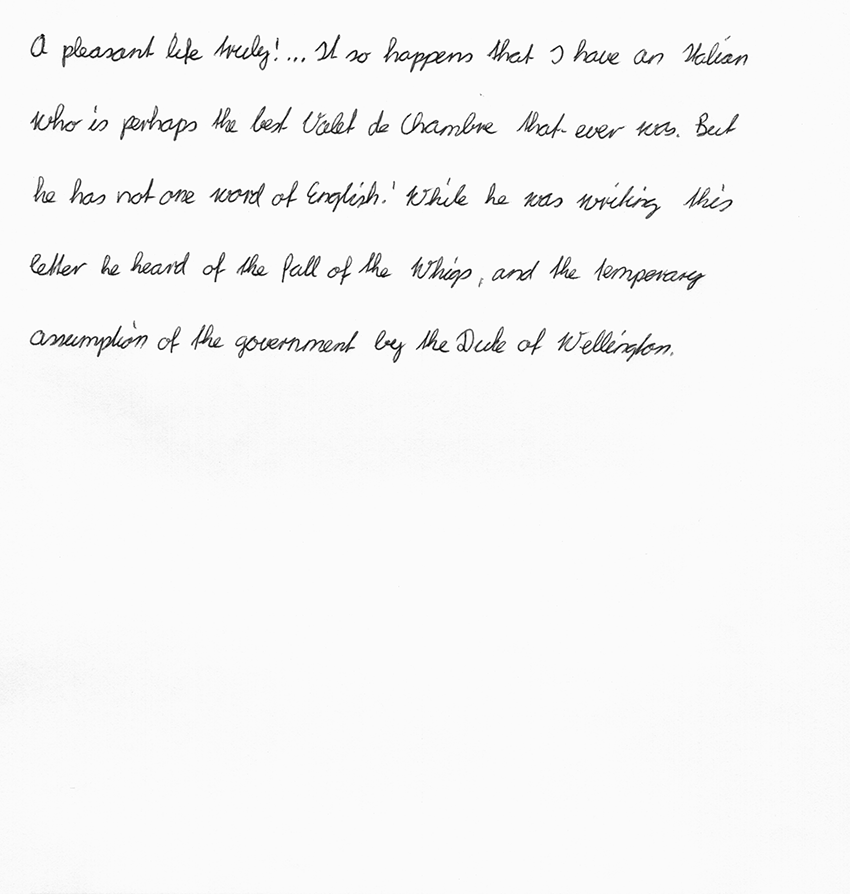 A pleasant life truly!... It so happens that I have an Italian
who is perhaps the best Valet de Chambre that ever was. But
he has not one word of English.' While he was writing this
letter he heard of the fall of the Whigs, and the temporary
assumption of the government by the Duke of Wellington.